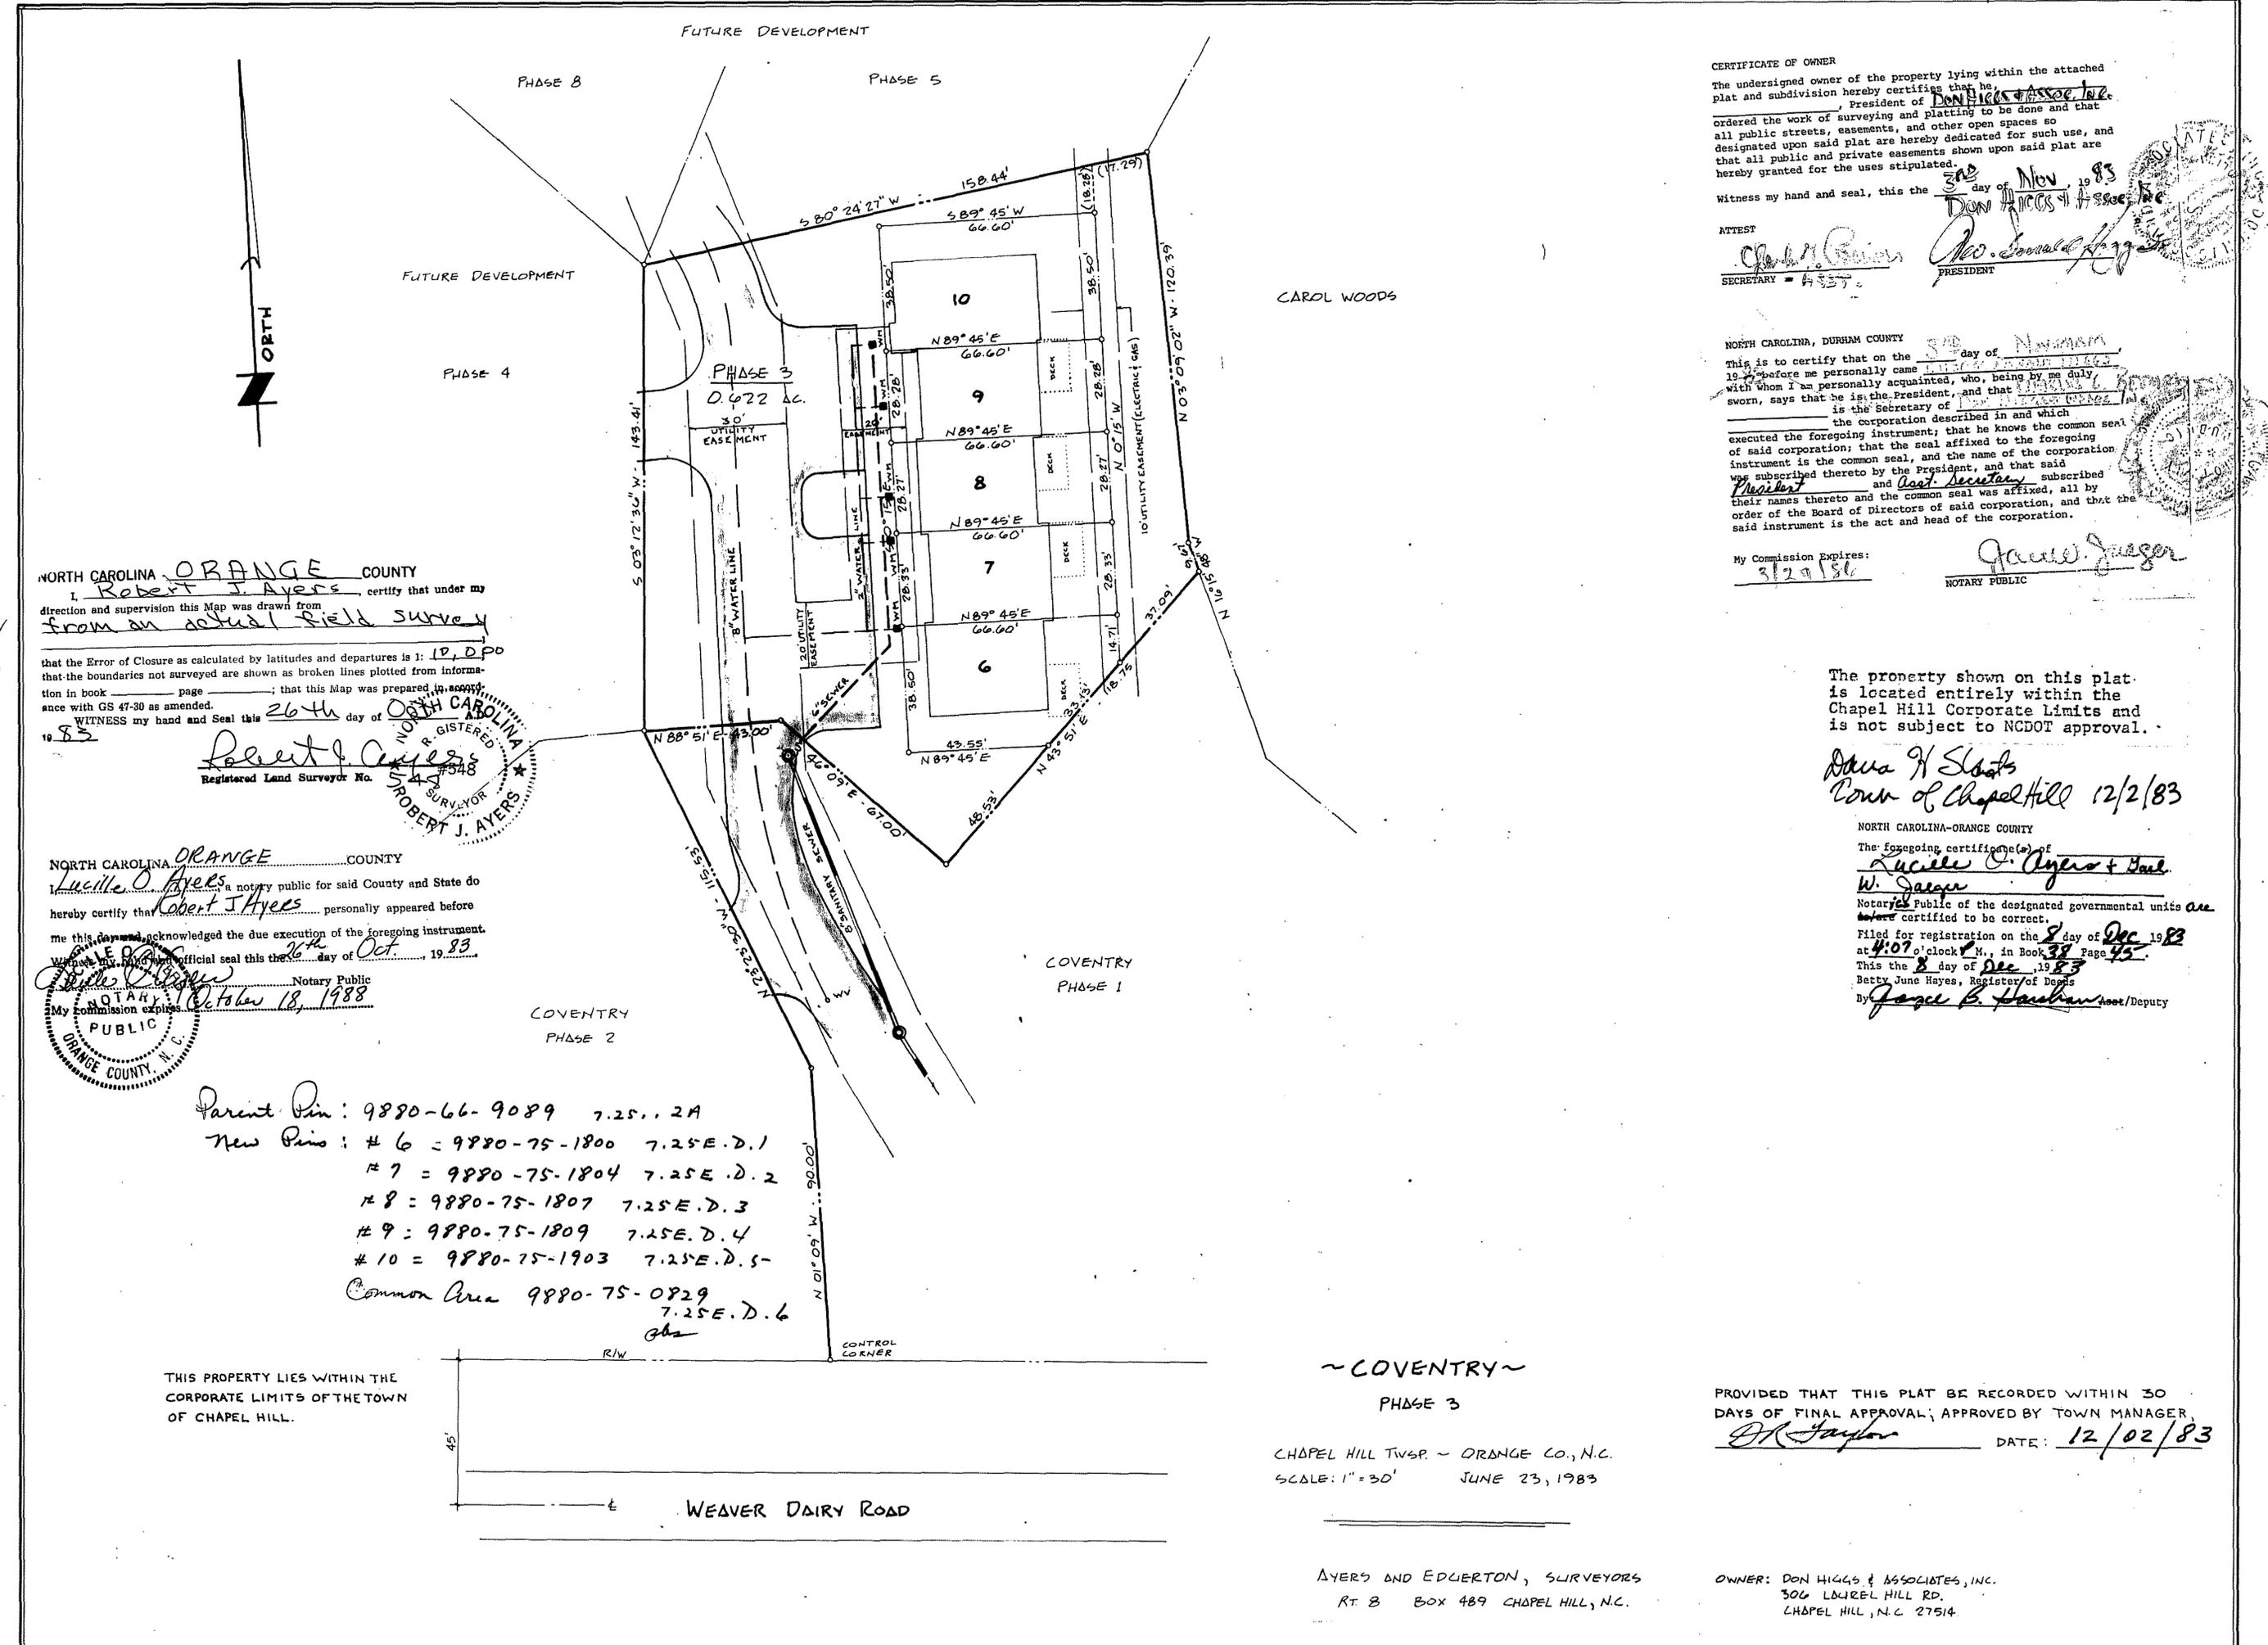 FUTURE DEVELOPMENT
PHASE 8
PHASE 5
FUTURE DEVELOPMENT
PHASE 4
CAROL WOODS
NORTH
S 80° 24' 27" W
158.44'
(17.29)
(18.28)
S 89° 45' W
66.60'
38.50'
38.50'
10
N 89° 45' E
66.60'
PHASE 3
0.622 AC.
30'
UTILITY
EASEMENT
20'
EASEMENT
WM
WM
28.28'
28.28'
9
DECK
N 89° 45' E
66.60'
8
DECK
28.27'
28.27'
N 0° 15' W
N 89° 45' E
66.60'
7
DECK
28.33'
28.33'
N 89° 45' E
66.60'
6
DECK
38.50'
14.71'
(18.75
33.13'
37.09'
43.55'
N 89° 45' E
N 43° 51' E
48.53'
10' UTILITY EASEMENT (ELECTRIC & GAS)
N 03° 09' 02" W - 120.39'
S 03° 12' 36" W - 143.41'
8" WATER LINE
2" WATER LINE
20' UTILITY
EASEMENT
6" SEWER
WM
WM
WM
N 88° 51' E - 43.00'
46° 09' E - 67.00'
8" SANITARY SEWER
N 23° 25' 30" W - 115.53'
WV
COVENTRY
PHASE 1
COVENTRY
PHASE 2
N 01° 09' W - 90.00'
CONTROL
CORNER
R/W
45'
WEAVER DAIRY ROAD
NORTH CAROLINA ORANGE COUNTY
I, Robert J. Ayers, certify that under my
direction and supervision this Map was drawn from
from an actual field survey
that the Error of Closure as calculated by latitudes and departures is 1: 10,000
that the boundaries not surveyed are shown as broken lines plotted from informa-
tion in book page ; that this Map was prepared in accord-
ance with GS 47-30 as amended.
WITNESS my hand and Seal this 26th day of Oct A.D.
1983
Robert J. Ayers
Registered Land Surveyor No.
NORTH CAROLINA
REGISTERED
SURVEYOR
ROBERT J. AYERS
NORTH CAROLINA ORANGE COUNTY
I Lucille O Ayers, a notary public for said County and State do
hereby certify that Robert J Ayers personally appeared before
me this day and acknowledged the due execution of the foregoing instrument.
Witness my hand and official seal this the 26th day of Oct., 1983.
Notary Public
My commission expires October 18, 1988
NOTARY
PUBLIC
ORANGE COUNTY, N. C.
Parent Pin: 9880-66-9089 7.25..2A
New Pins: #6 = 9880-75-1800 7.25E.D.1
#7 = 9880-75-1804 7.25E.D.2
#8 = 9880-75-1807 7.25E.D.3
#9 = 9880-75-1809 7.25E.D.4
#10 = 9880-75-1903 7.25E.D.5
Common Area 9880-75-0829
7.25E.D.6
THIS PROPERTY LIES WITHIN THE
CORPORATE LIMITS OF THE TOWN
OF CHAPEL HILL.
~COVENTRY~
PHASE 3
CHAPEL HILL TWSP. ~ ORANGE CO., N.C.
SCALE: 1" = 30' JUNE 23, 1983
AYERS AND EDGERTON, SURVEYORS
RT. 8 BOX 489 CHAPEL HILL, N.C.
CERTIFICATE OF OWNER
The undersigned owner of the property lying within the attached
plat and subdivision hereby certifies that he,
, President of Don Higgs & Assoc. Inc.
ordered the work of surveying and platting to be done and that
all public streets, easements, and other open spaces so
designated upon said plat are hereby dedicated for such use, and
that all public and private easements shown upon said plat are
hereby granted for the uses stipulated.
Witness my hand and seal, this the 3RD day of Nov, 1983
Don Higgs & Assoc, Inc
ATTEST
SECRETARY - ASST.
PRESIDENT
NORTH CAROLINA, DURHAM COUNTY
This is to certify that on the 3RD day of
19 before me personally came
with whom I am personally acquainted, who, being by me duly
sworn, says that he is the President, and that
is the Secretary of
the corporation described in and which
executed the foregoing instrument; that he knows the common seal
of said corporation; that the seal affixed to the foregoing
instrument is the common seal, and the name of the corporation
was subscribed thereto by the President, and that said
President and Asst. Secretary subscribed
their names thereto and the common seal was affixed, all by
order of the Board of Directors of said corporation, and that the
said instrument is the act and head of the corporation.
My Commission Expires:
3/29/86
NOTARY PUBLIC
The property shown on this plat
is located entirely within the
Chapel Hill Corporate Limits and
is not subject to NCDOT approval.
Town of Chapel Hill 12/2/83
NORTH CAROLINA-ORANGE COUNTY
The foregoing certificate(s) of
Lucille O. Ayers + Gail
W. Jaeger
Notaries Public of the designated governmental units are
certified to be correct.
Filed for registration on the 8 day of Dec 1983
at 4:07 o'clock P M., in Book 38 Page 45.
This the 8 day of Dec, 1983
Betty June Hayes, Register of Deeds
By Asst/Deputy
PROVIDED THAT THIS PLAT BE RECORDED WITHIN 30
DAYS OF FINAL APPROVAL; APPROVED BY TOWN MANAGER,
DATE: 12/02/83
OWNER: DON HIGGS & ASSOCIATES, INC.
306 LAUREL HILL RD.
CHAPEL HILL, N.C. 27514